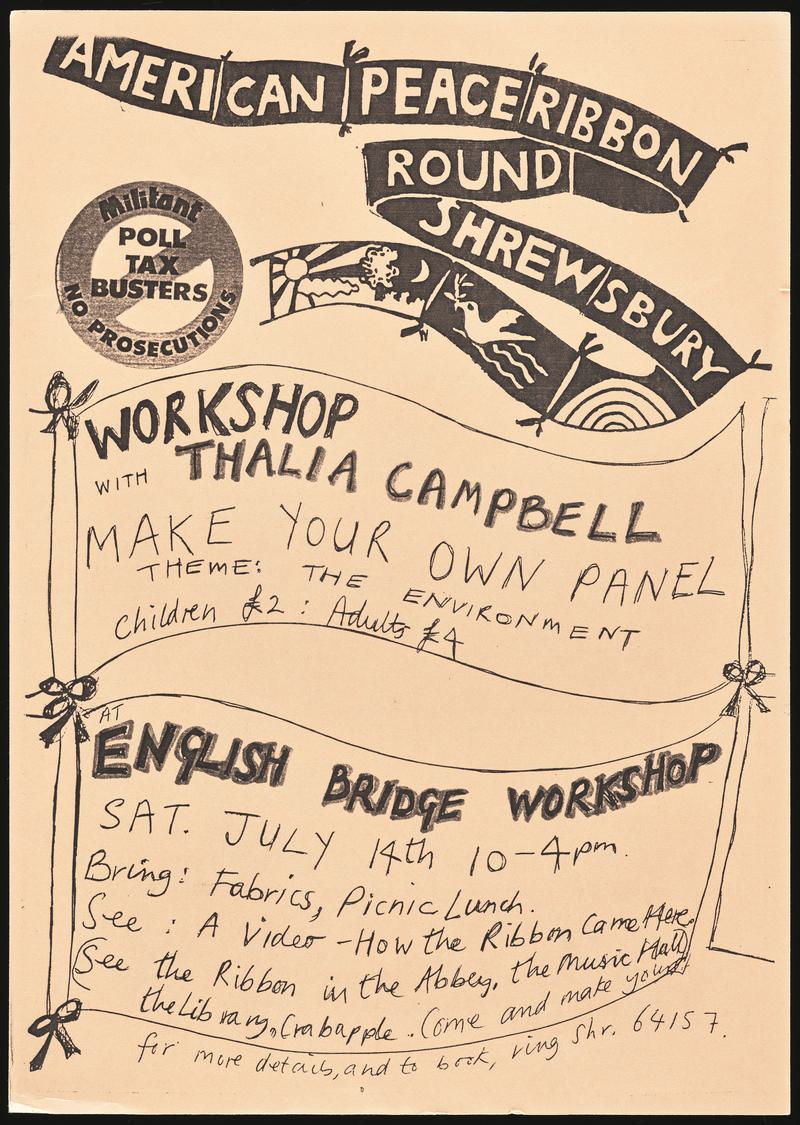 AMERICAN PEACE RIBBON
ROUND
SHREWSBURY
Militant
POLL
TAX
BUSTERS
NO PROSECUTIONS
WORKSHOP
WITH THALIA CAMPBELL
MAKE YOUR OWN PANEL
THEME: THE ENVIRONMENT
Children £2 : Adults £4
AT
ENGLISH BRIDGE WORKSHOP
SAT. JULY 14th 10-4pm.
Bring: Fabrics, Picnic Lunch.
See : A Video - How the Ribbon Came Here.
(See the Ribbon in the Abbey, the Music Hall)
the Library, Crabapple. Come and make yours!
for more details, and to book, ring Shr. 64157.